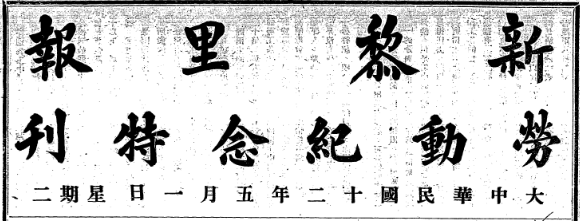 新黎里報
勞動紀念特刊
大中華民國十二年五月一日星期二